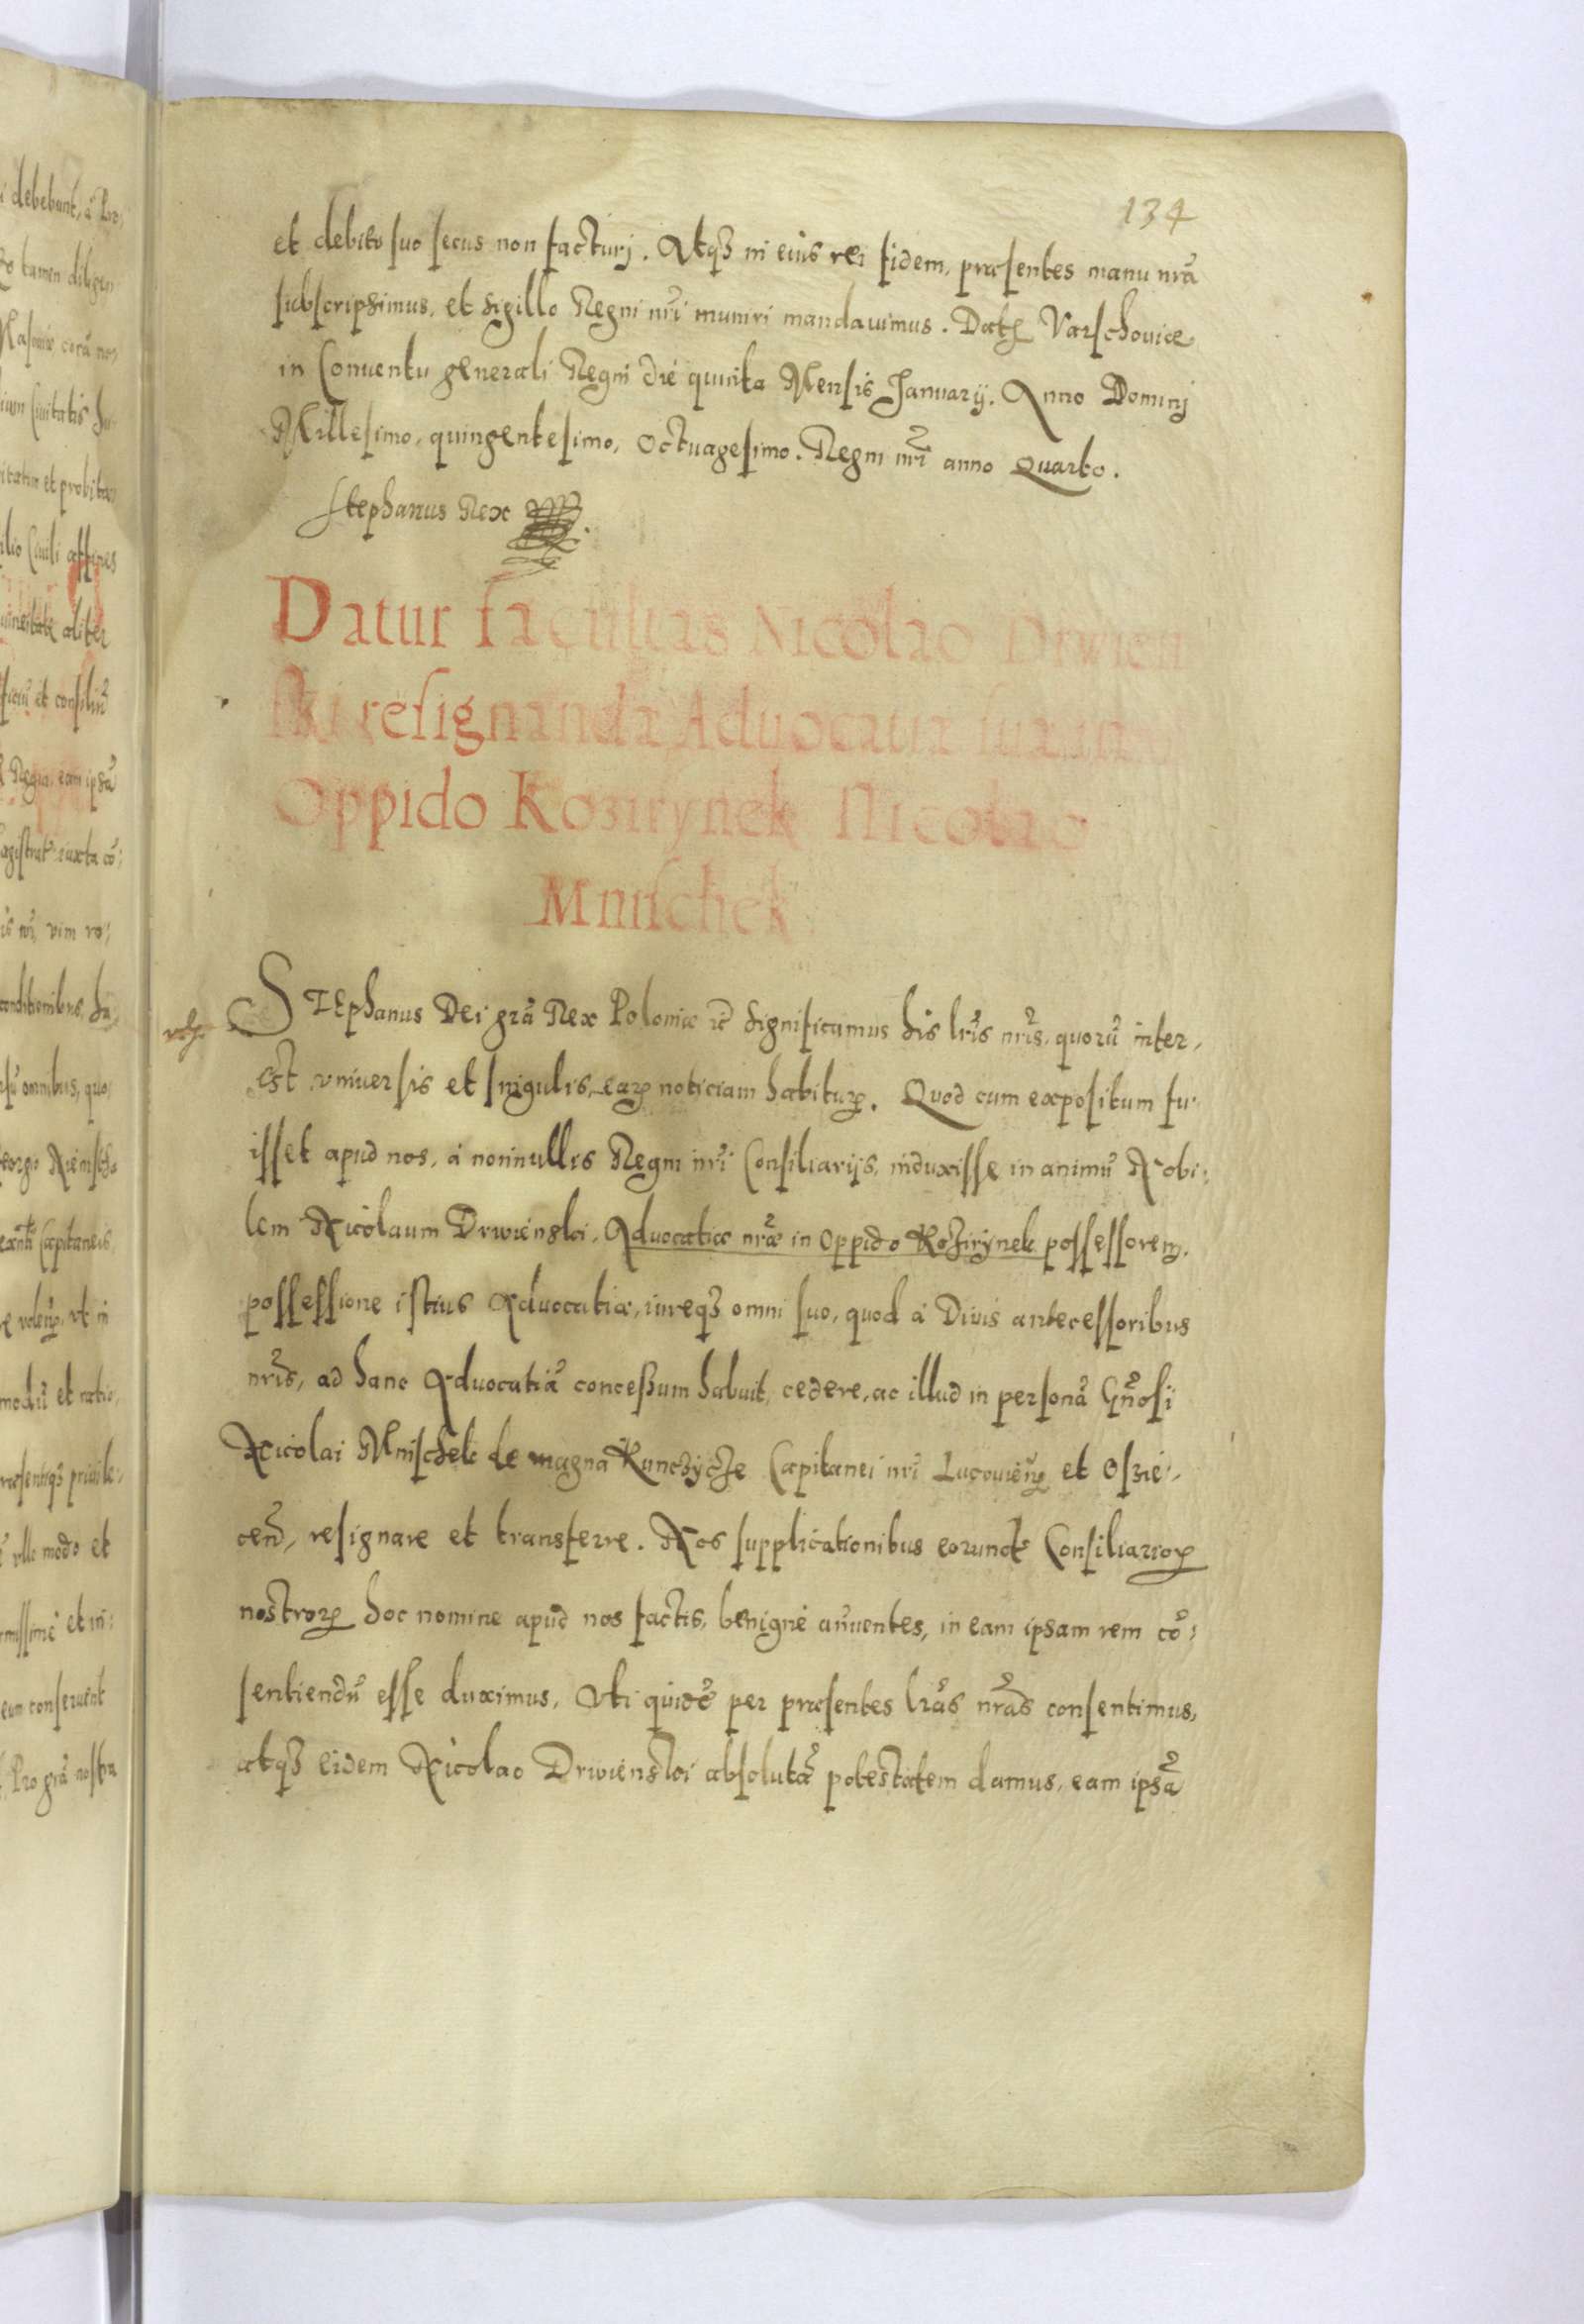 134
et debito suo secus non facturj. Atqʒ in eius rei fidem, præsentes manu nrã
subscripsimus, et sigillo Regni nr̃i muniri mandauimus. Datȩ Varschouiæ
in Conuentu generali Regni die quinta Mensis Januarij. Anno Dominj
Millesimo, quingentesimo, Octuagesimo. Regni nr̃i anno Quarto.
Stephanus Rex
Datur facultas Nicolao Drwien
ski resignandæ Aduocatiæ suæ in
Oppido Kozirynek Nicolao
Mnischek
STEphanus Dei grã Rex Poloniæ ꝛc̃ Significamus his lr̃is nr̃is, quorũ inter,
est vniuersis et singulis, earꝝ noticiam habiturꝭ. Quod cum expositum fu,
isset apud nos, à nonnullis Regni nr̃i Consiliarijs, induxisse in animũ Nobi:
lem Nicolaum Drwienski, Aduocatiæ nr̃æ in Oppido Kozirynek possessorem,
possessione istius Aduocatiæ, iureqʒ omni suo, quod à Diuis antecessoribus
nr̃is, ad hanc Aduocatiã concessum habuit, cedere, ac illud in personã Gñosi
Nicolai Mnischek de magna Kunczycze Capitanei nr̃i Lucouieñ et Oswie:,
ceñ, resignare et transferre. Nos supplicationibus eorundẽ Consiliarioꝝ
nostroꝝ hoc nomine apud nos factis, benignè añuentes, in eam ipsam rem cõ:
sentiendũ esse duximus, Vti quidẽ per præsentes lr̃as nr̃as consentimus,
atqʒ eidem Nicolao Drwienskoi absolutã potestatem damus, eam ipsã